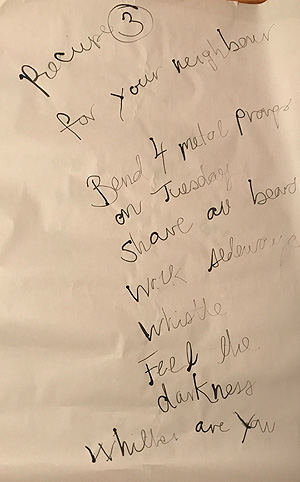 Recipe 3
for your neighbour
Bend 4 metal prongs
on Tuesday
Shave all beard
Walk sideways
Whistle
Feel the
darkness
are You